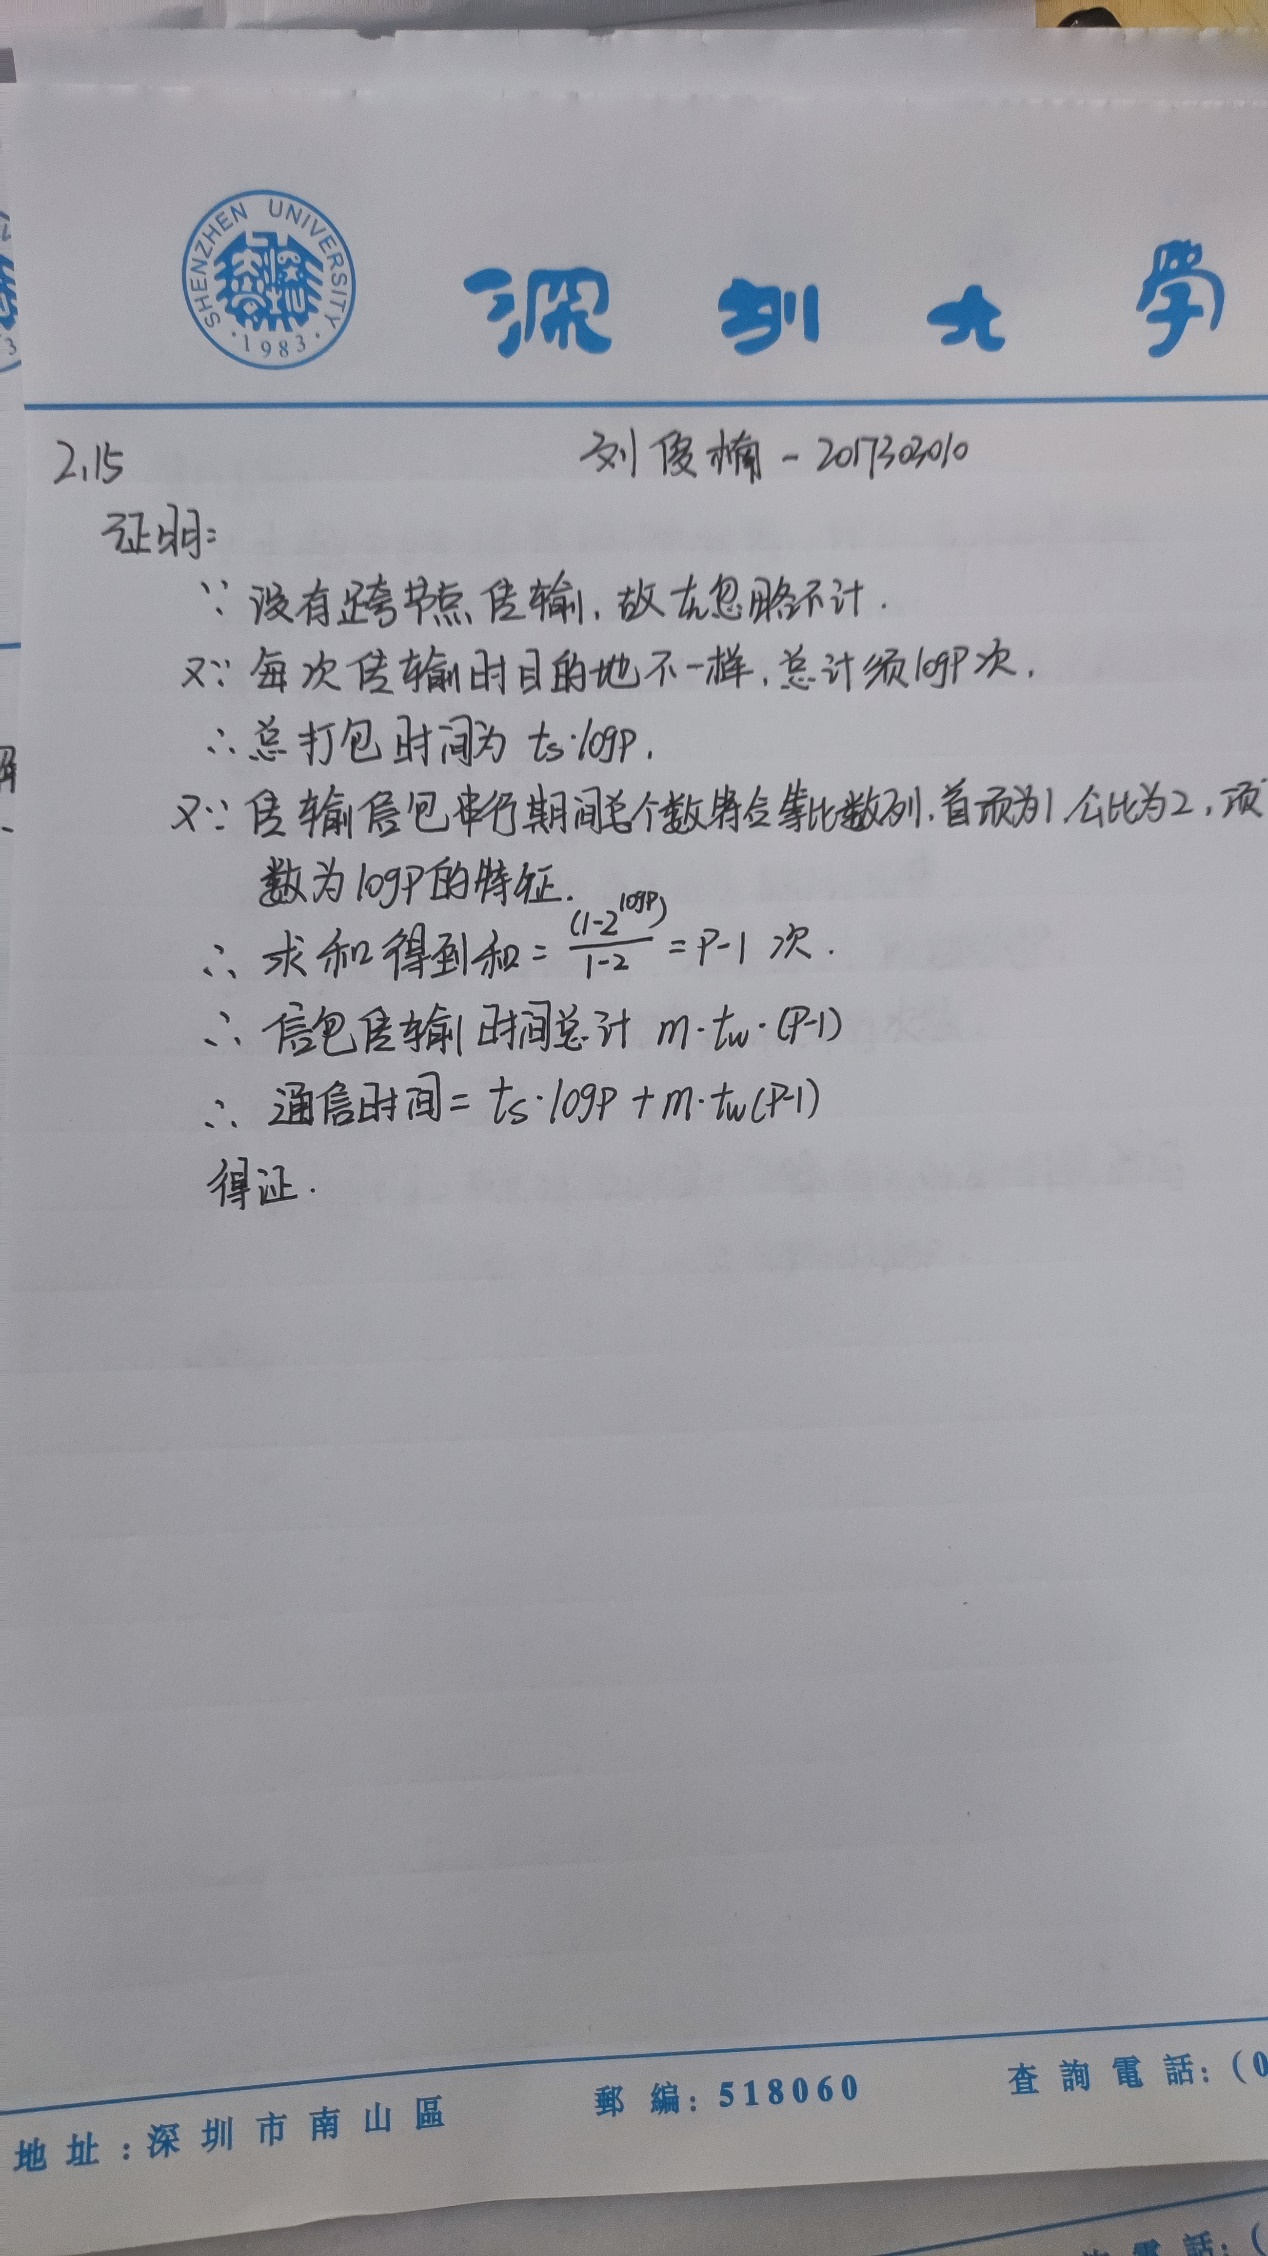 SHENZHEN UNIVERSITY
·1983·
深圳大學
2.15
刘俊楠-2017303010
证明:
∵ 没有跨节点传输,故th忽略不计.
又∵ 每次传输时目的地不一样,总计须logP次,
∴ 总打包时间为 ts·logP.
又∵ 传输信包串行期间总个数符合等比数列,首项为1,公比为2,项
数为logP的特征.
∴ 求和得到和= (1-2^logP)/(1-2) = P-1 次.
∴ 信包传输时间总计 m·tw·(P-1)
∴ 通信时间= ts·logP + m·tw(P-1)
得证.
地址:深圳市南山區
郵編:518060
查詢電話:(0
電話:(